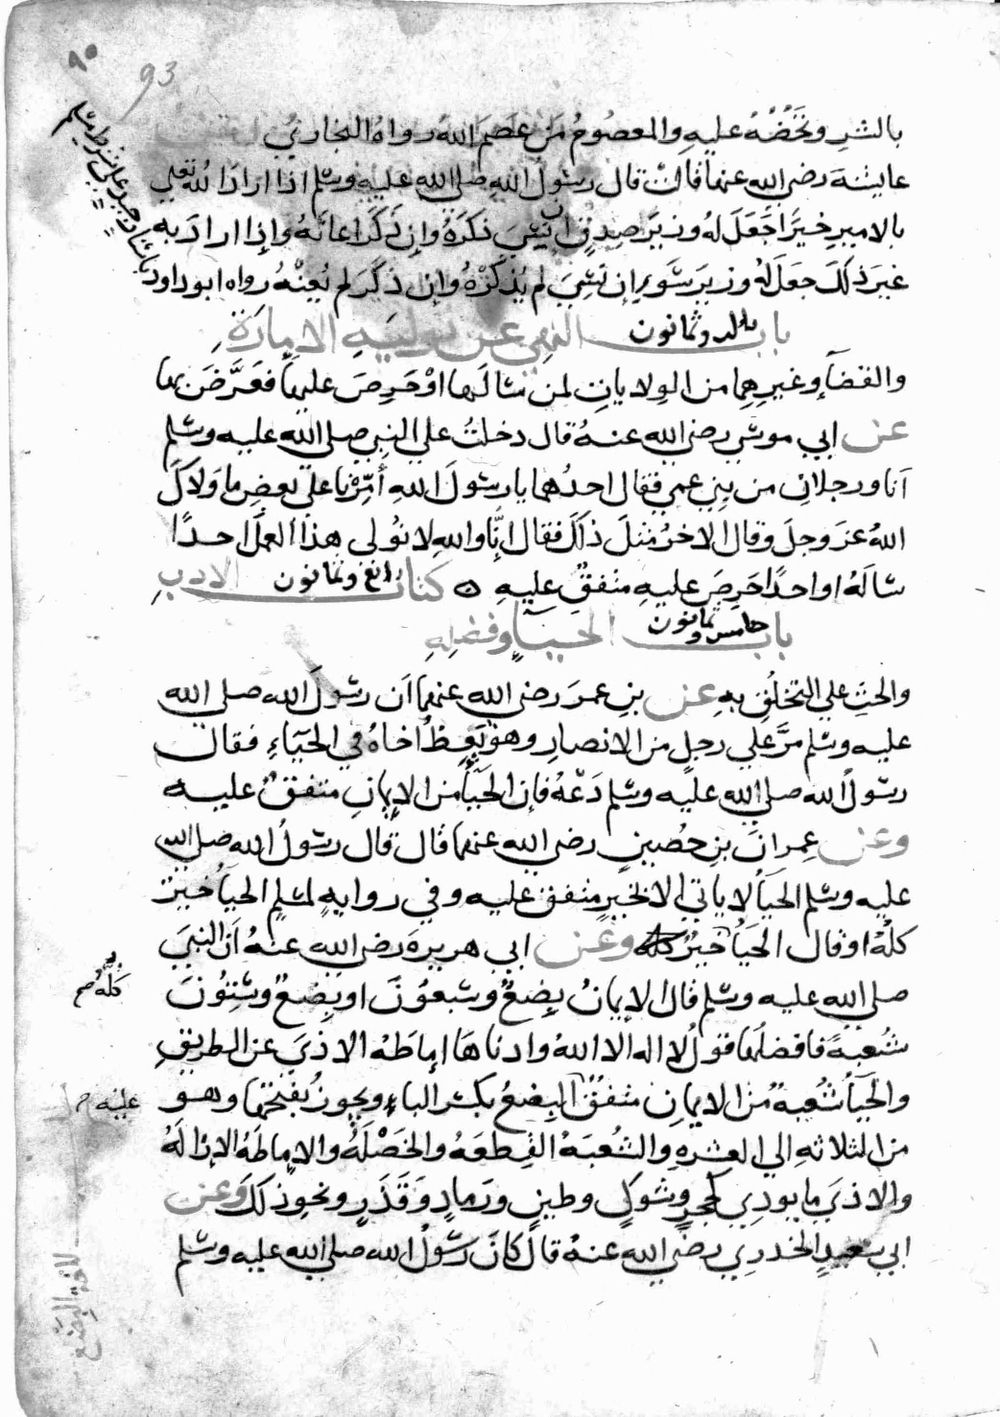 ٩٠
93
بالشر وتحضه عليه والمعصوم من عصم الله رواه البخاري
عايشة رضي الله عنها قالت قال رسول الله صلى الله عليه وسلم اذا اراد الله تعلي
بالامير خيرًا جعل له وزير صدق ان نسي ذكره وان ذكر اعانه واذا اراد به
غير ذلك جعل له وزير سوء ان نسي لم يذكره وان ذكر لم يعنه رواه ابو داود
باسناد جيد على شرط مسلم
باب ثالث وثمانون النهي عن تولية الامارة
والقضآء وغيرهما من الولايات لمن سالها او حرص عليها فعرّض بها
عن ابي موسى رضي الله عنه قال دخلت على النبي صلى الله عليه وسلم
انا ورجلان من بني عمي فقال احدهما يا رسول الله أمّرنا على بعض ما ولاك
الله عز وجل وقال الاخر مثل ذلك فقال إنّا والله لا نولى هذا العمل احدًا
ساله او احدًا حرص عليه متفق عليه ه كتاب رابع وثمانون الادب
باب خامس وثمانون الحيآء وفضله
والحث على التخلق به عن بن عمر رضي الله عنهما ان رسول الله صلى الله
عليه وسلم مرّ على رجل من الانصار وهو يعظ اخاه في الحيآء فقال
رسول الله صلى الله عليه وسلم دعه فان الحيآ من الايمان متفق عليه
وعن عمران بن حصين رضي الله عنهما قال قال رسول الله صلى الله
عليه وسلم الحيآ لا ياتي الا بخير متفق عليه وفي رواية لمسلم الحيآ خير
كله او قال الحيآ خير كله وعن ابي هريرة رضي الله عنه ان النبي
كلّه صح
صلى الله عليه وسلم قال الايمان بضع وسبعون او بضع وستون
شعبة فافضلها قول لا اله الا الله وادناها اماطة الاذى عن الطريق
والحيآ شعبة من الايمان متفق البضع بكسر الباء ويجوز بفتحها وهو
عليه
من الثلاثة الى العشرة والشعبة القطعة والخصلة والاماطة الازالة
والاذى ما يوذي كحجر وشوك وطين ورماد وقذر ونحو ذلك وعن
ابي سعيد الخدري رضي الله عنه قال كان رسول الله صلى الله عليه وسلم